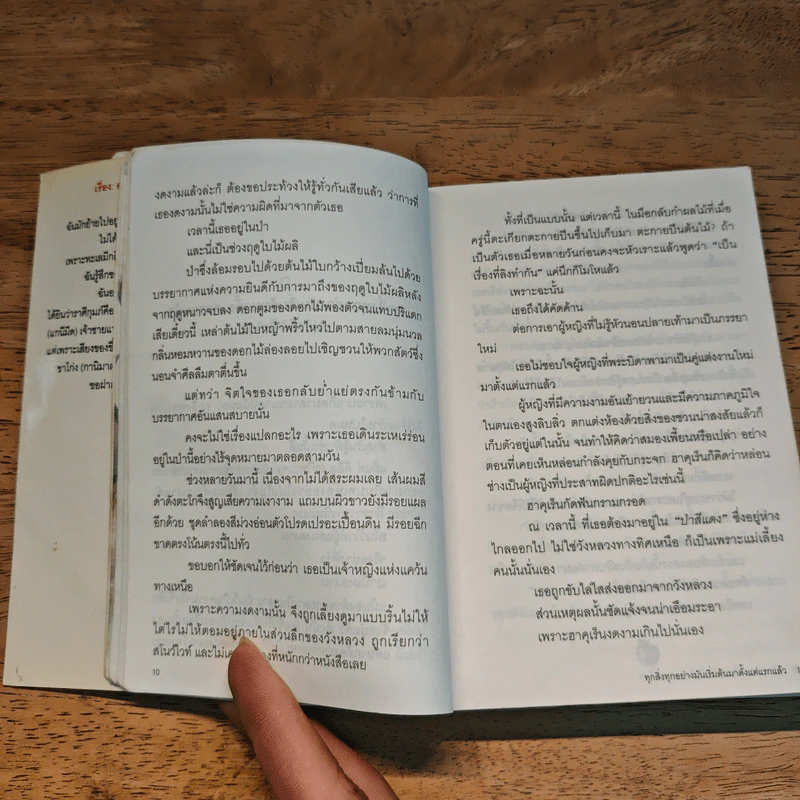 เรื่อง:
ฉันมักย้ายไปอยู่
ไม่ได้
เพราะทะเลมีก
ฉันรู้สึกข
ฉันอ
ได้ยินว่าราศีกุมภ์คือ
(แกนิมีด) เจ้าชายแ
แต่เพราะเสียงของชื่
ขาโก่ง (กานิมาต
ขอฝาก
งดงามแล้วล่ะก็ ต้องขอประท้วงให้รู้ทั่วกันเสียแล้ว ว่าการที่
เธองดงามนั้นไม่ใช่ความผิดที่มาจากตัวเธอ
เวลานี้เธออยู่ในป่า
และนี่เป็นช่วงฤดูใบไม้ผลิ
ป่าซึ่งล้อมรอบไปด้วยต้นไม้ใบกว้างเปี่ยมล้นไปด้วย
บรรยากาศแห่งความยินดีกับการมาถึงของฤดูใบไม้ผลิหลัง
จากฤดูหนาวจบลง ดอกตูมของดอกไม้พองตัวจนแทบปริแตก
เสียเดี๋ยวนี้ เหล่าต้นไม้ใบหญ้าพริ้วไหวไปตามสายลมนุ่มนวล
กลิ่นหอมหวานของดอกไม้ล่องลอยไปเชิญชวนให้พวกสัตว์ซึ่ง
นอนจำศีลลืมตาตื่นขึ้น
แต่ทว่า จิตใจของเธอกลับย่ำแย่ตรงกันข้ามกับ
บรรยากาศอันแสนสบายนั้น
คงจะไม่ใช่เรื่องแปลกอะไร เพราะเธอเดินระเหเร่ร่อน
อยู่ในป่านี้อย่างไร้จุดหมายมาตลอดสามวัน
ช่วงหลายวันมานี้ เนื่องจากไม่ได้สระผมเลย เส้นผมสี
ดำดังตะโกจึงสูญเสียความเงางาม แถมบนผิวขาวยังมีรอยแผล
อีกด้วย ชุดลำลองสีม่วงอ่อนตัวโปรดเปรอะเปื้อนดิน มีรอยฉีก
ขาดตรงโน้นตรงนี้ไปทั่ว
ขอบอกให้ชัดเจนไว้ก่อนว่า เธอเป็นเจ้าหญิงแห่งแคว้น
ทางเหนือ
เพราะความงดงามนั้น จึงถูกเลี้ยงดูมาแบบริ้นไม่ให้
ไต่ไรไม่ให้ตอมอยู่ภายในส่วนลึกของวังหลวง ถูกเรียกว่า
สโนว์ไวท์ และไม่เค องที่หนักกว่าหนังสือเลย
10
ทั้งที่เป็นแบบนั้น แต่เวลานี้ ในมือกลับกำผลไม้ที่เมื่อ
ครู่นี้ตะเกียกตะกายปีนขึ้นไปเก็บมา ตะกายปีนต้นไม้? ถ้า
เป็นตัวเธอเมื่อหลายวันก่อนคงจะหัวเราะแล้วพูดว่า "เป็น
เรื่องที่ลิงทำกัน" แค่นึกก็โมโหแล้ว
เพราะฉะนั้น
เธอถึงได้คัดค้าน
ต่อการเอาผู้หญิงที่ไม่รู้หัวนอนปลายเท้ามาเป็นภรรยา
ใหม่
เธอไม่ชอบใจผู้หญิงที่พระบิดาพามาเป็นคู่แต่งงานใหม่
มาตั้งแต่แรกแล้ว
ผู้หญิงที่มีความงามอันเย้ายวนและมีความภาคภูมิใจ
ในตนเองสูงลิบลิ่ว ตกแต่งห้องด้วยสิ่งของชวนน่าสงสัยแล้วก็
เก็บตัวอยู่แต่ในนั้น จนทำให้คิดว่าสมองเพี้ยนหรือเปล่า อย่าง
ตอนที่เคยเห็นหล่อนกำลังคุยกับกระจก ฮาคุเร็นก็คิดว่าหล่อน
ช่างเป็นผู้หญิงที่ประสาทผิดปกติอะไรเช่นนี้
ฮาคุเร็นกัดฟันกรามกรอด
ณ เวลานี้ ที่เธอต้องมาอยู่ใน "ป่าสีแดง" ซึ่งอยู่ห่าง
ไกลออกไป ไม่ใช่วังหลวงทางทิศเหนือ ก็เป็นเพราะแม่เลี้ยง
คนนั้นนั่นเอง
เธอถูกขับไล่ไสส่งออกมาจากวังหลวง
ส่วนเหตุผลนั้นชัดแจ้งจนน่าเอือมระอา
เพราะฮาคุเร็นงดงามเกินไปนั่นเอง
ทุกสิ่งทุกอย่างมันเริ่มต้นมาตั้งแต่แรกแล้ว